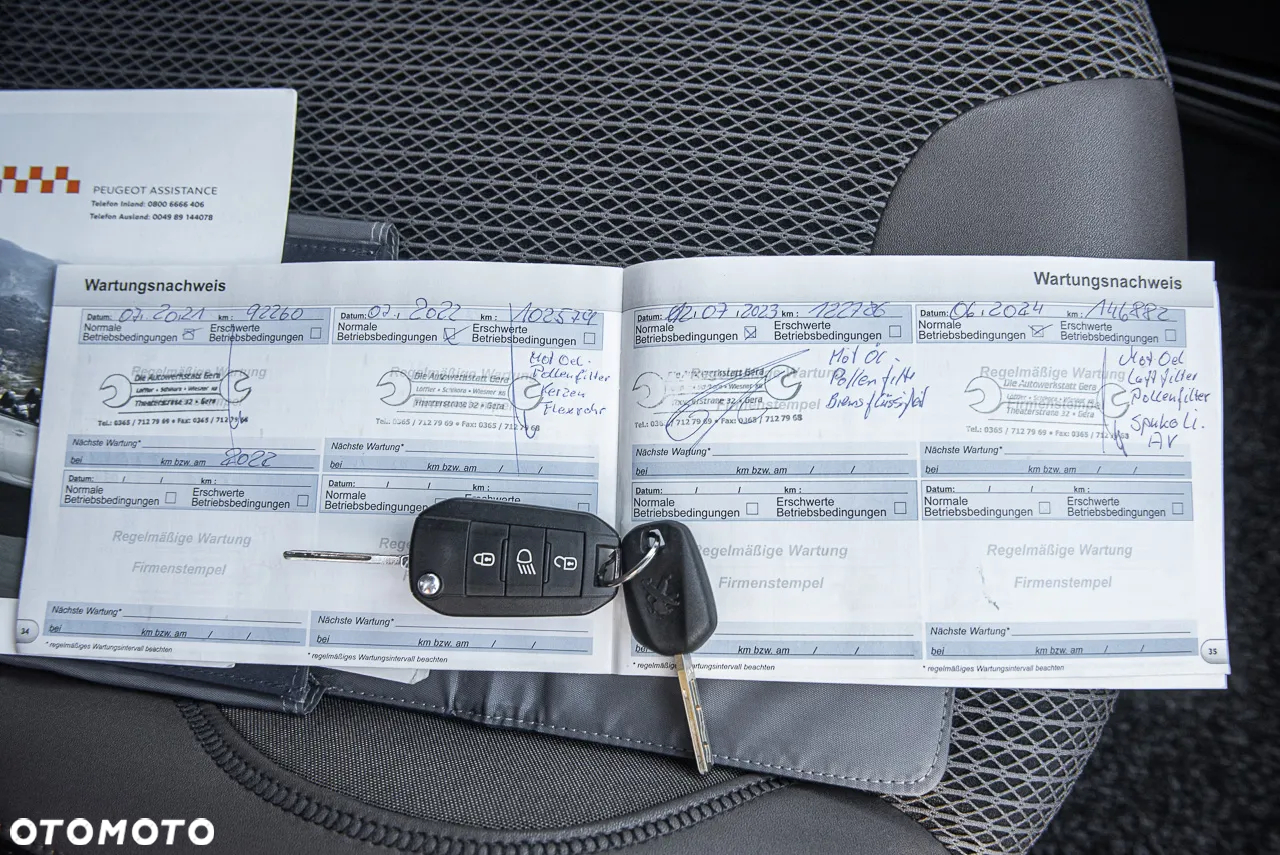 PEUGEOT ASSISTANCE
Telefon Inland: 0800 6666 406
Telefon Ausland: 0049 89 144078
Wartungsnachweis
Datum: 07.2021 km: 92260
Normale Betriebsbedingungen
Erschwerte Betriebsbedingungen
Regelmäßige Wartung
Die Autowerkstatt Gera
Theaterstrasse 32 • Gera
Tel.: 0365 / 712 79 69 • Fax: 0365 / 712 79 68
Nächste Wartung*
bei km bzw. am 2022
Datum: / / km:
Normale Betriebsbedingungen
Erschwerte Betriebsbedingungen
Regelmäßige Wartung
Firmenstempel
Nächste Wartung*
bei km bzw. am / /
* regelmäßiges Wartungsintervall beachten
34
Datum: 07. 2022 km: 102579
Normale Betriebsbedingungen
Erschwerte Betriebsbedingungen
Die Autowerkstatt Gera
Theaterstrasse 32 • Gera
Tel.: 0365 / 712 79 69 • Fax: 0365 / 712 79 68
Pollenfilter
Kerzen
Flexrohr
Nächste Wartung*
bei km bzw. am / /
Datum: / / km:
Normale Betriebsbedingungen
Erschwerte
Nächste Wartung*
bei km bzw. am / /
* regelmäßiges Wartungsintervall beachten
Wartungsnachweis
Datum: 02.07.2023 km: 122786
Normale Betriebsbedingungen
Erschwerte Betriebsbedingungen
Firmenstempel
Tel.: 0365 / 712 79 69 • Fax: 0365 / 712 79 68
Mot Öl.
Pollenfilter
Bremsflüssigkeit
Nächste Wartung*
bei km bzw. am / /
Datum: / / km:
Normale Betriebsbedingungen
Erschwerte Betriebsbedingungen
Regelmäßige Wartung
Firmenstempel
km bzw. am / /
* regelmäßiges Wartungsintervall beachten
Datum: 06.2024 km: 146882
Normale Betriebsbedingungen
Erschwerte Betriebsbedingungen
Regelmäßige Wartung
Die Autowerkstatt Gera
Firmenstempel
Theaterstrasse 32 • Gera
Tel.: 0365 / 712 79 69 • Fax: 0365 / 712 79 68
Luftfilter
Pollenfilter
Nächste Wartung*
bei km bzw. am / /
Datum: / / km:
Normale Betriebsbedingungen
Erschwerte Betriebsbedingungen
Regelmäßige Wartung
Firmenstempel
Nächste Wartung*
bei km bzw. am / /
* regelmäßiges Wartungsintervall beachten
35
OTOMOTO